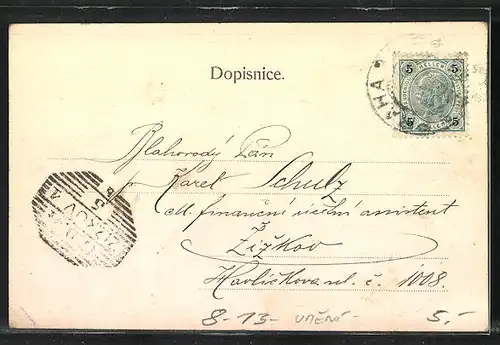 Dopisnice.
5 HELLER 5
5 5
Blahorodý Pán
p. Karel Schulz
c.k. finanční účetní assistent
Žižkov
Havlíčkova ul. č. 1008.
8-13- UMĚNÍ- 5,-